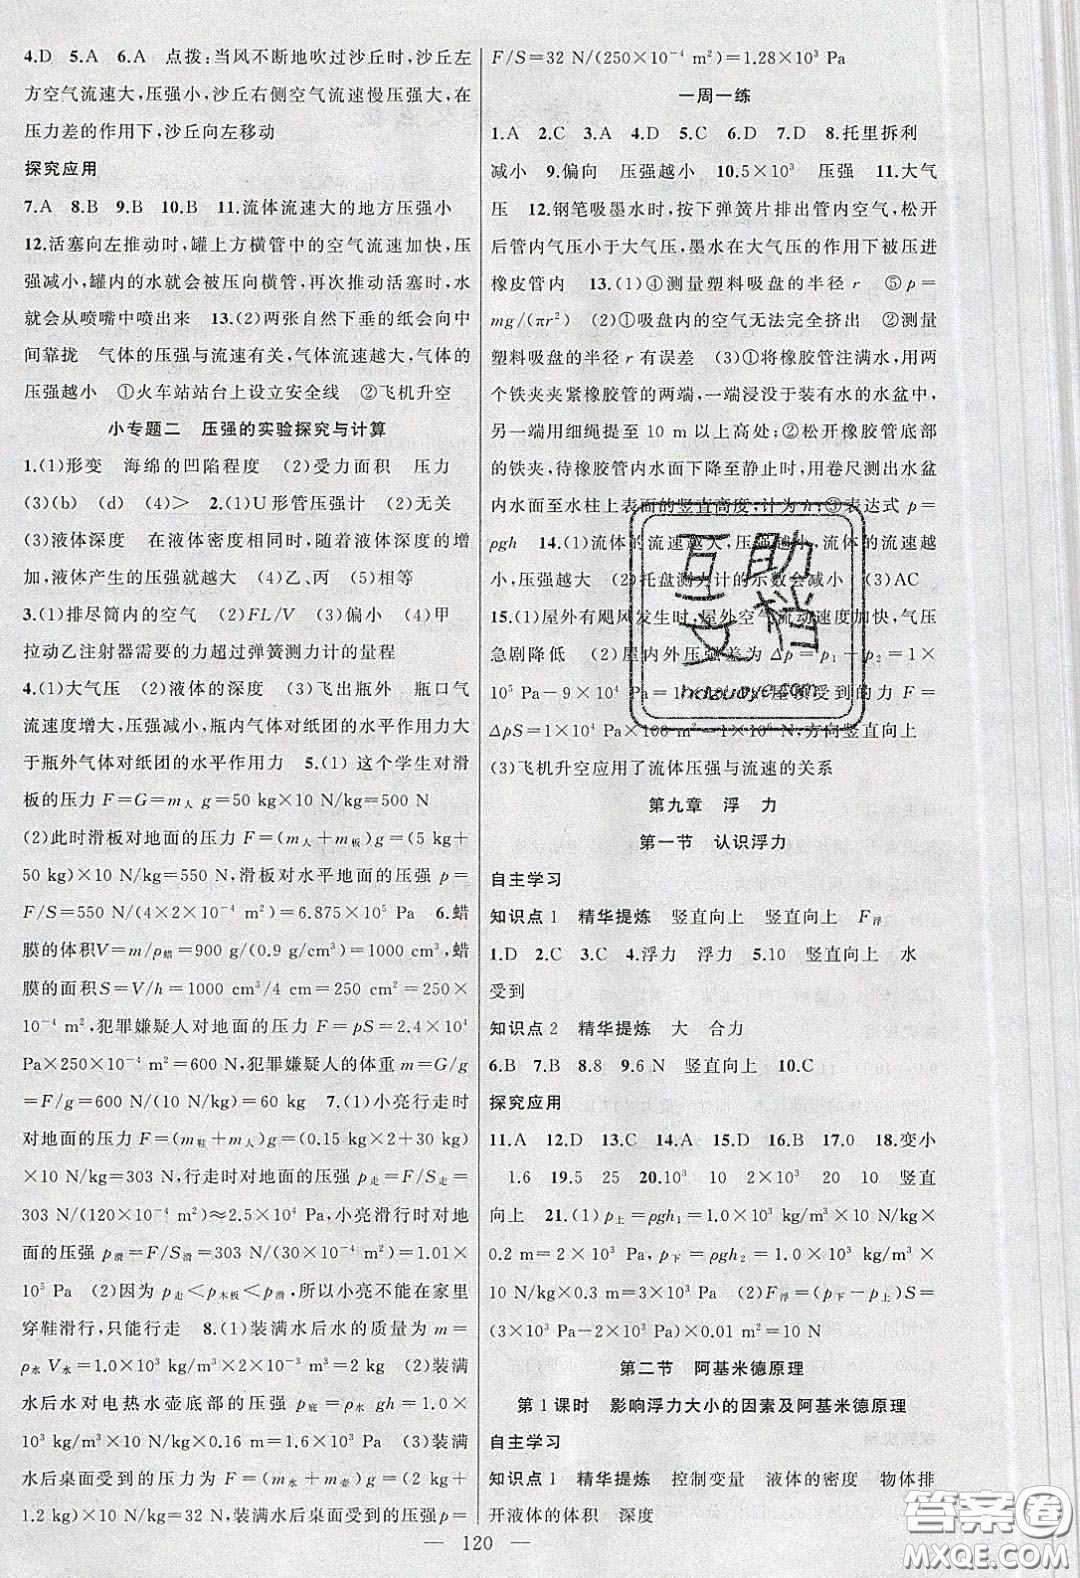 4.D 5.A 6.A 点拨:当风不断地吹过沙丘时,沙丘左
方空气流速大,压强小,沙丘右侧空气流速慢压强大,在
压力差的作用下,沙丘向左移动
探究应用
7.A 8.B 9.B 10.B 11.流体流速大的地方压强小
12.活塞向左推动时,罐上方横管中的空气流速加快,压
强减小,罐内的水就会被压向横管,再次推动活塞时,水
就会从喷嘴中喷出来 13.(2)两张自然下垂的纸会向中
间靠拢 气体的压强与流速有关,气体流速越大,气体的
压强越小 ①火车站站台上设立安全线 ②飞机升空
小专题二 压强的实验探究与计算
1.(1)形变 海绵的凹陷程度 (2)受力面积 压力
(3)(b) (d) (4)> 2.(1)U形管压强计 (2)无关
(3)液体深度 在液体密度相同时,随着液体深度的增
加,液体产生的压强就越大 (4)乙、丙 (5)相等
3.(1)排尽筒内的空气 (2)FL/V (3)偏小 (4)甲
拉动乙注射器需要的力超过弹簧测力计的量程
4.(1)大气压 (2)液体的深度 (3)飞出瓶外 瓶口气
流速度增大,压强减小,瓶内气体对纸团的水平作用力大
于瓶外气体对纸团的水平作用力 5.(1) 这个学生对滑
板的压力 F=G=m人 g=50 kg×10 N/kg=500 N
(2)此时滑板对地面的压力 F=(m人+m板)g=(5 kg+
50 kg)×10 N/kg=550 N,滑板对水平地面的压强 p=
F/S=550 N/(4×2×10⁻⁴ m²)=6.875×10⁵ Pa 6.蜡
膜的体积V=m/ρ蜡=900 g/(0.9 g/cm³)=1000 cm³,蜡
膜的面积 S=V/h=1000 cm³/4 cm=250 cm²=250×
10⁻⁴ m²,犯罪嫌疑人对地面的压力 F=pS=2.4×10⁴
Pa×250×10⁻⁴ m²=600 N,犯罪嫌疑人的体重 m=G/g
=F/g=600 N/(10 N/kg)=60 kg 7.(1)小亮行走时
对地面的压力 F=(m鞋+m人)g=(0.15 kg×2+30 kg)
×10 N/kg=303 N,行走时对地面的压强 p走=F/S走=
303 N/(120×10⁻⁴ m²)≈2.5×10⁴ Pa,小亮滑行时对地
面的压强 p滑=F/S滑=303 N/(30×10⁻⁴ m²)=1.01×
10⁵ Pa (2)因为 p走<p木板<p滑,所以小亮不能在家里
穿鞋滑行,只能行走 8.(1)装满水后水的质量为 m=
ρ水 V水=1.0×10³ kg/m³×2×10⁻³ m³=2 kg (2)装满
水后水对电热水壶底部的压强 p底=ρ水 gh=1.0×
10³ kg/m³×10 N/kg×0.16 m=1.6×10³ Pa (3)装满
水后桌面受到的压力为 F=G总=(m水+m壶)g=(2 kg+
1.2 kg)×10 N/kg=32 N,装满水后桌面受到的压强 p=
F/S=32 N/(250×10⁻⁴ m²)=1.28×10³ Pa
一周一练
1.A 2.C 3.A 4.D 5.C 6.D 7.D 8.托里拆利
减小 9.偏向 压强越小 10.5×10³ 压强 11.大气
压 12.钢笔吸墨水时,按下弹簧片排出管内空气,松开
后管内气压小于大气压,墨水在大气压的作用下被压进
橡皮管内 13.(1)④测量塑料吸盘的半径 r ⑤p=
mg/(πr²) (2)①吸盘内的空气无法完全挤出 ②测量
塑料吸盘的半径 r 有误差 (3)①将橡胶管注满水,用两
个铁夹夹紧橡胶管的两端,一端浸没于装有水的水盆中,
另一端用细绳提至 10 m 以上高处;②松开橡胶管底部
的铁夹,待橡胶管内水面下降至静止时,用卷尺测出水盆
内水面至水柱上表面的竖直高度,计为 h;③表达式 p=
ρgh 14.(1)流体的流速越大,压强越小,流体的流速越
小,压强越大 (2)托盘测力计的示数会减小 (3)AC
15.(1)屋外有飓风发生时,屋外空气流动速度加快,气压
急剧降低 (2)屋内外压强差为 Δp=p₁-p₂=1×
10⁵ Pa-9×10⁴ Pa=1 屋顶受到的力 F=
ΔpS=1×10⁴ Pa×100 m²=1×10⁶ N,方向竖直向上
(3)飞机升空应用了流体压强与流速的关系
第九章 浮 力
第一节 认识浮力
自主学习
知识点1 精华提炼 竖直向上 竖直向上 F浮
1.D 2.C 3.C 4.浮力 浮力 5.10 竖直向上 水
受到
知识点2 精华提炼 大 合力
6.B 7.B 8.8 9.6 N 竖直向上 10.C
探究应用
11.A 12.D 13.C 14.A 15.D 16.B 17.0 18.变小
1.6 19.5 25 20.10³ 10 2×10³ 20 10 竖直
向上 21.(1)p上=ρgh₁=1.0×10³ kg/m³×10 N/kg×
0.2 m=2×10³ Pa,p下=ρgh₂=1.0×10³ kg/m³×
10 N/kg×0.3 m=3×10³ Pa (2)F浮=(p下-p上)S=
(3×10³ Pa-2×10³ Pa)×0.01 m²=10 N
第二节 阿基米德原理
第1课时 影响浮力大小的因素及阿基米德原理
自主学习
知识点1 精华提炼 控制变量 液体的密度 物体排
开液体的体积 深度
— 120 —
互助文档
答案圈
MXQE.COM